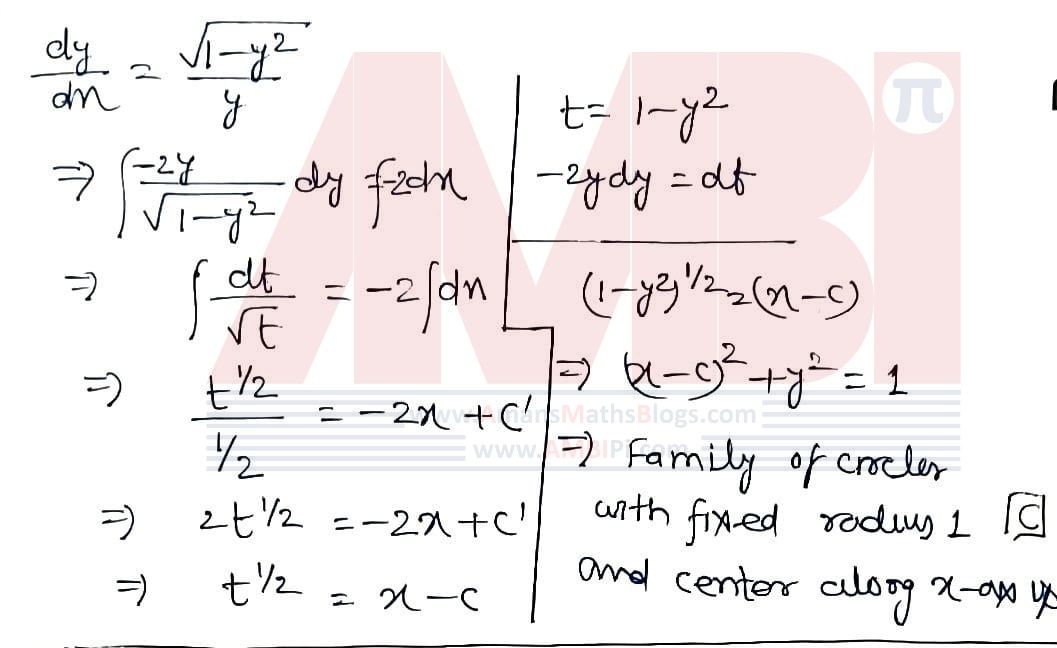 dy/dx = √(1-y²)/y
⇒ ∫ -2y/√(1-y²) dy = ∫-2dx
⇒ ∫ dt/√t = -2∫dx
⇒ t^1/2 / 1/2 = -2x + c'
⇒ 2t^1/2 = -2x + c'
⇒ t^1/2 = x - c
t = 1-y²
-2y dy = dt
(1-y²)^1/2 = (x-c)
⇒ (x-c)² + y² = 1
⇒ Family of circles
with fixed radius 1 [C]
and center along x-axis
AMBI π
www.AmansMathsBlogs.com
www.AMBIPi.com